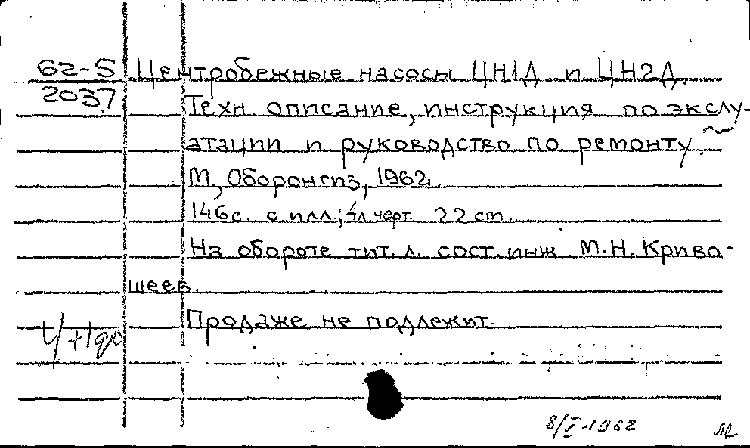 62-5 Центробежные насосы ЦН1Д и ЦН2Д.
2037 Техн. описание, инструкция по экслу-
атации и руководство по ремонту.
М, Оборонгиз, 1962.
146с. с илл.; 4л черт. 22 cm.
На обороте тит. л. сост. инж М.Н. Криво-
шеев.
Продаже не подлежит.
8/I-1962